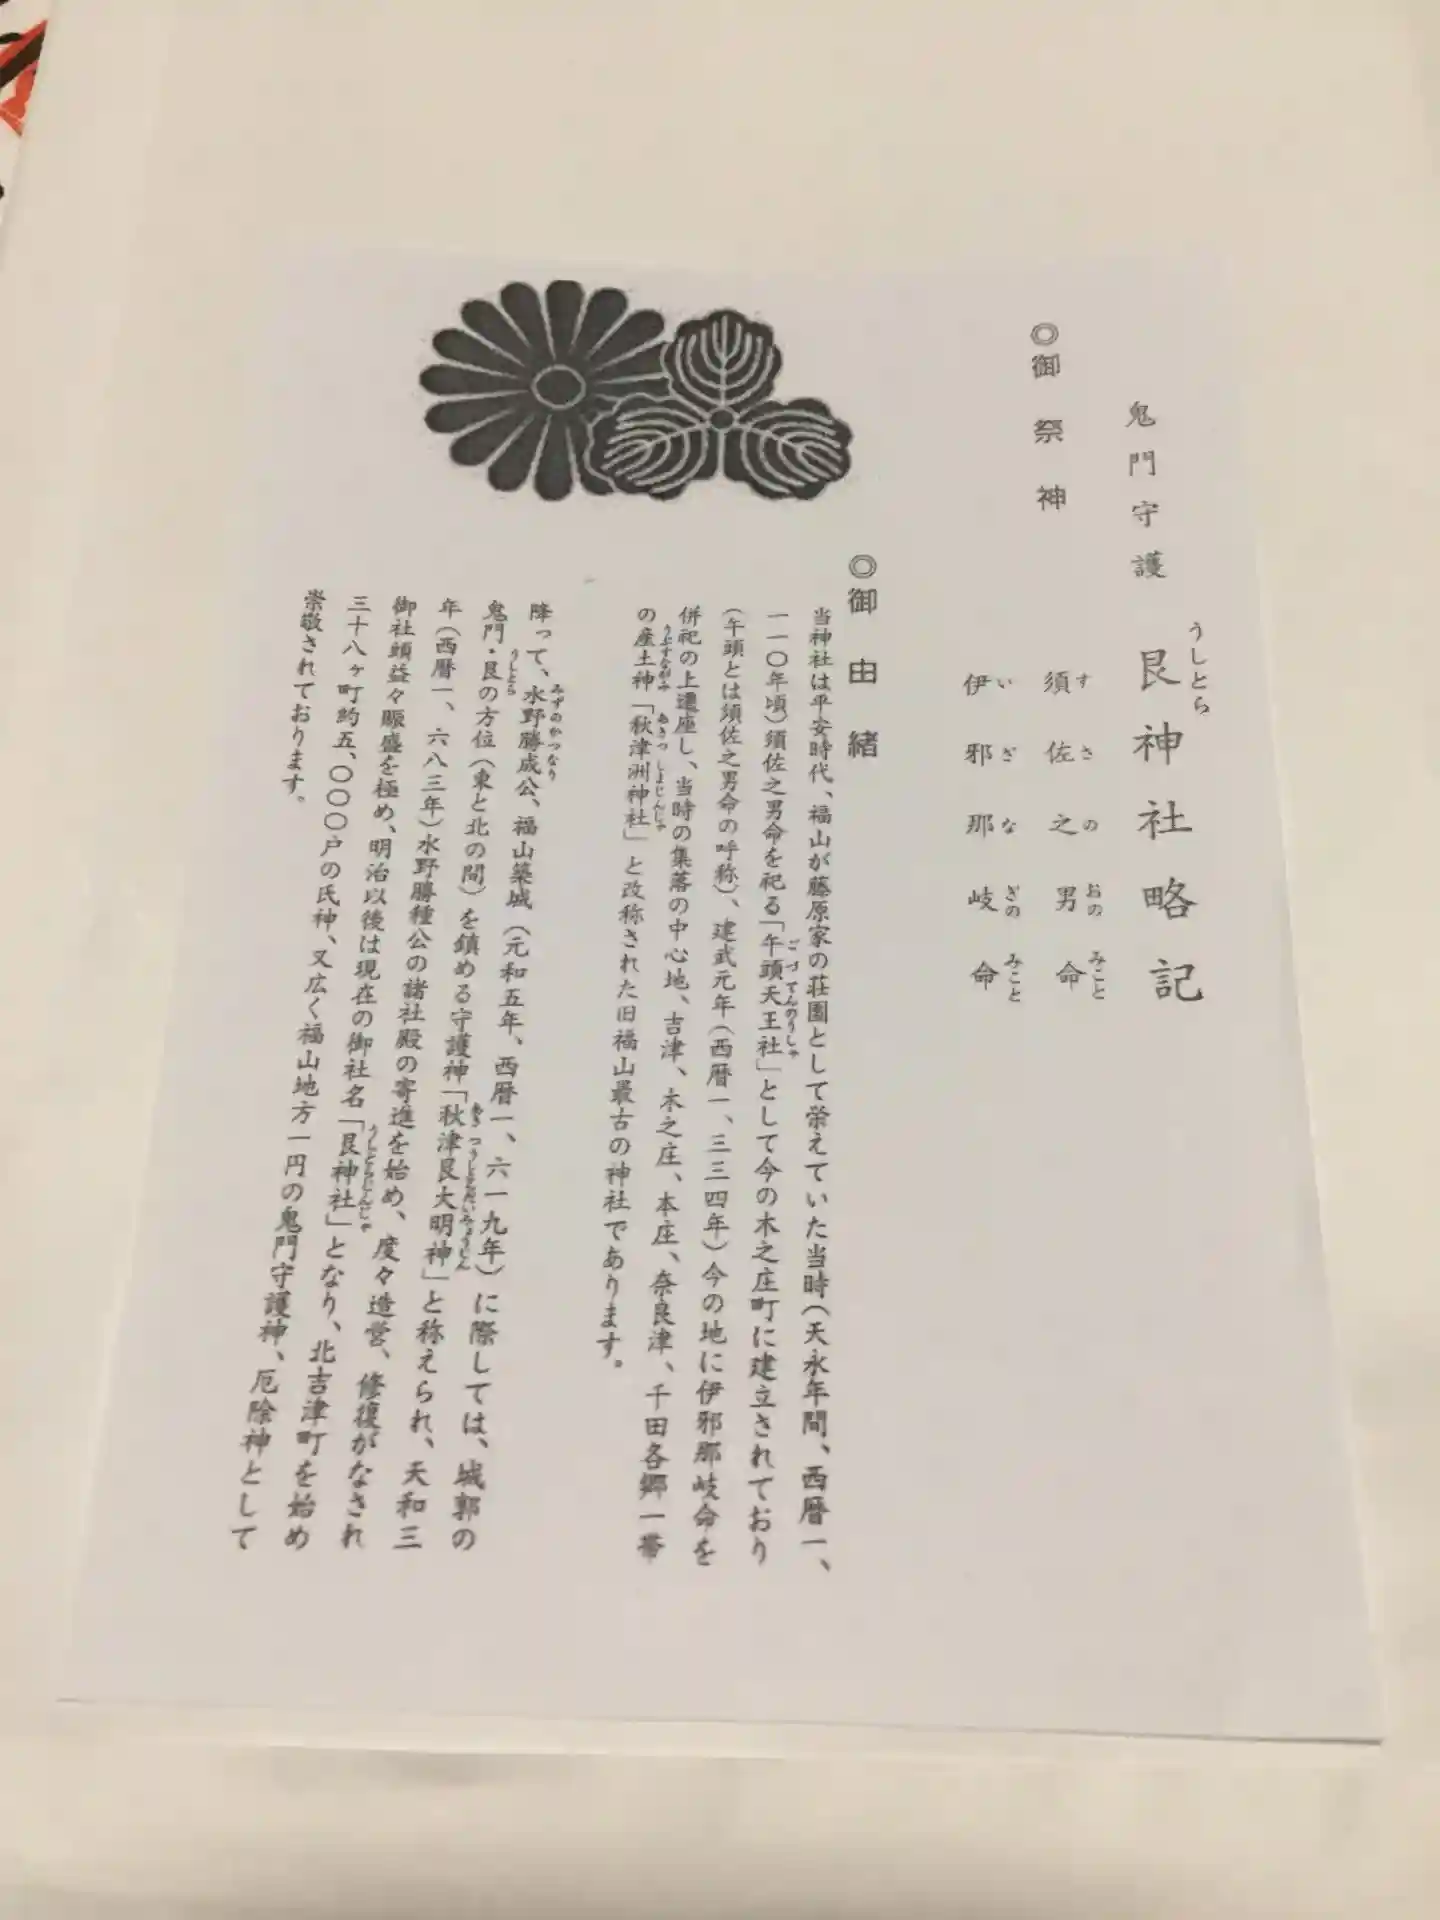 鬼門守護 艮神社略記
うしとら
◎御祭神
須佐之男命
すさのおのみこと
伊邪那岐命
いざなぎのみこと
◎御由緒
当神社は平安時代、福山が藤原家の荘園として栄えていた当時(天永年間、西暦一、
一一〇年頃)須佐之男命を祀る「午頭天王社」として今の木之庄町に建立されており
ごづてんのうしゃ
(午頭とは須佐之男命の呼称)、建武元年(西暦一、三三四年)今の地に伊邪那岐命を
併祀の上遷座し、当時の集落の中心地、吉津、木之庄、本庄、奈良津、千田各郷一帯
の産土神「秋津洲神社」と改称された旧福山最古の神社であります。
うぶすながみ あきつしまじんじゃ
降って、水野勝成公、福山築城(元和五年、西暦一、六一九年)に際しては、城郭の
みずのかつなり
鬼門・艮の方位(東と北の間)を鎮める守護神「秋津艮大明神」と称えられ、天和三
うしとら あきつうしとらだいみょうじん
年(西暦一、六八三年)水野勝種公の諸社殿の寄進を始め、度々造営、修復がなされ
御社頭益々賑盛を極め、明治以後は現在の御社名「艮神社」となり、北吉津町を始め
うしとらじんじゃ
三十八ヶ町約五、〇〇〇戸の氏神、又広く福山地方一円の鬼門守護神、厄除神として
崇敬されております。